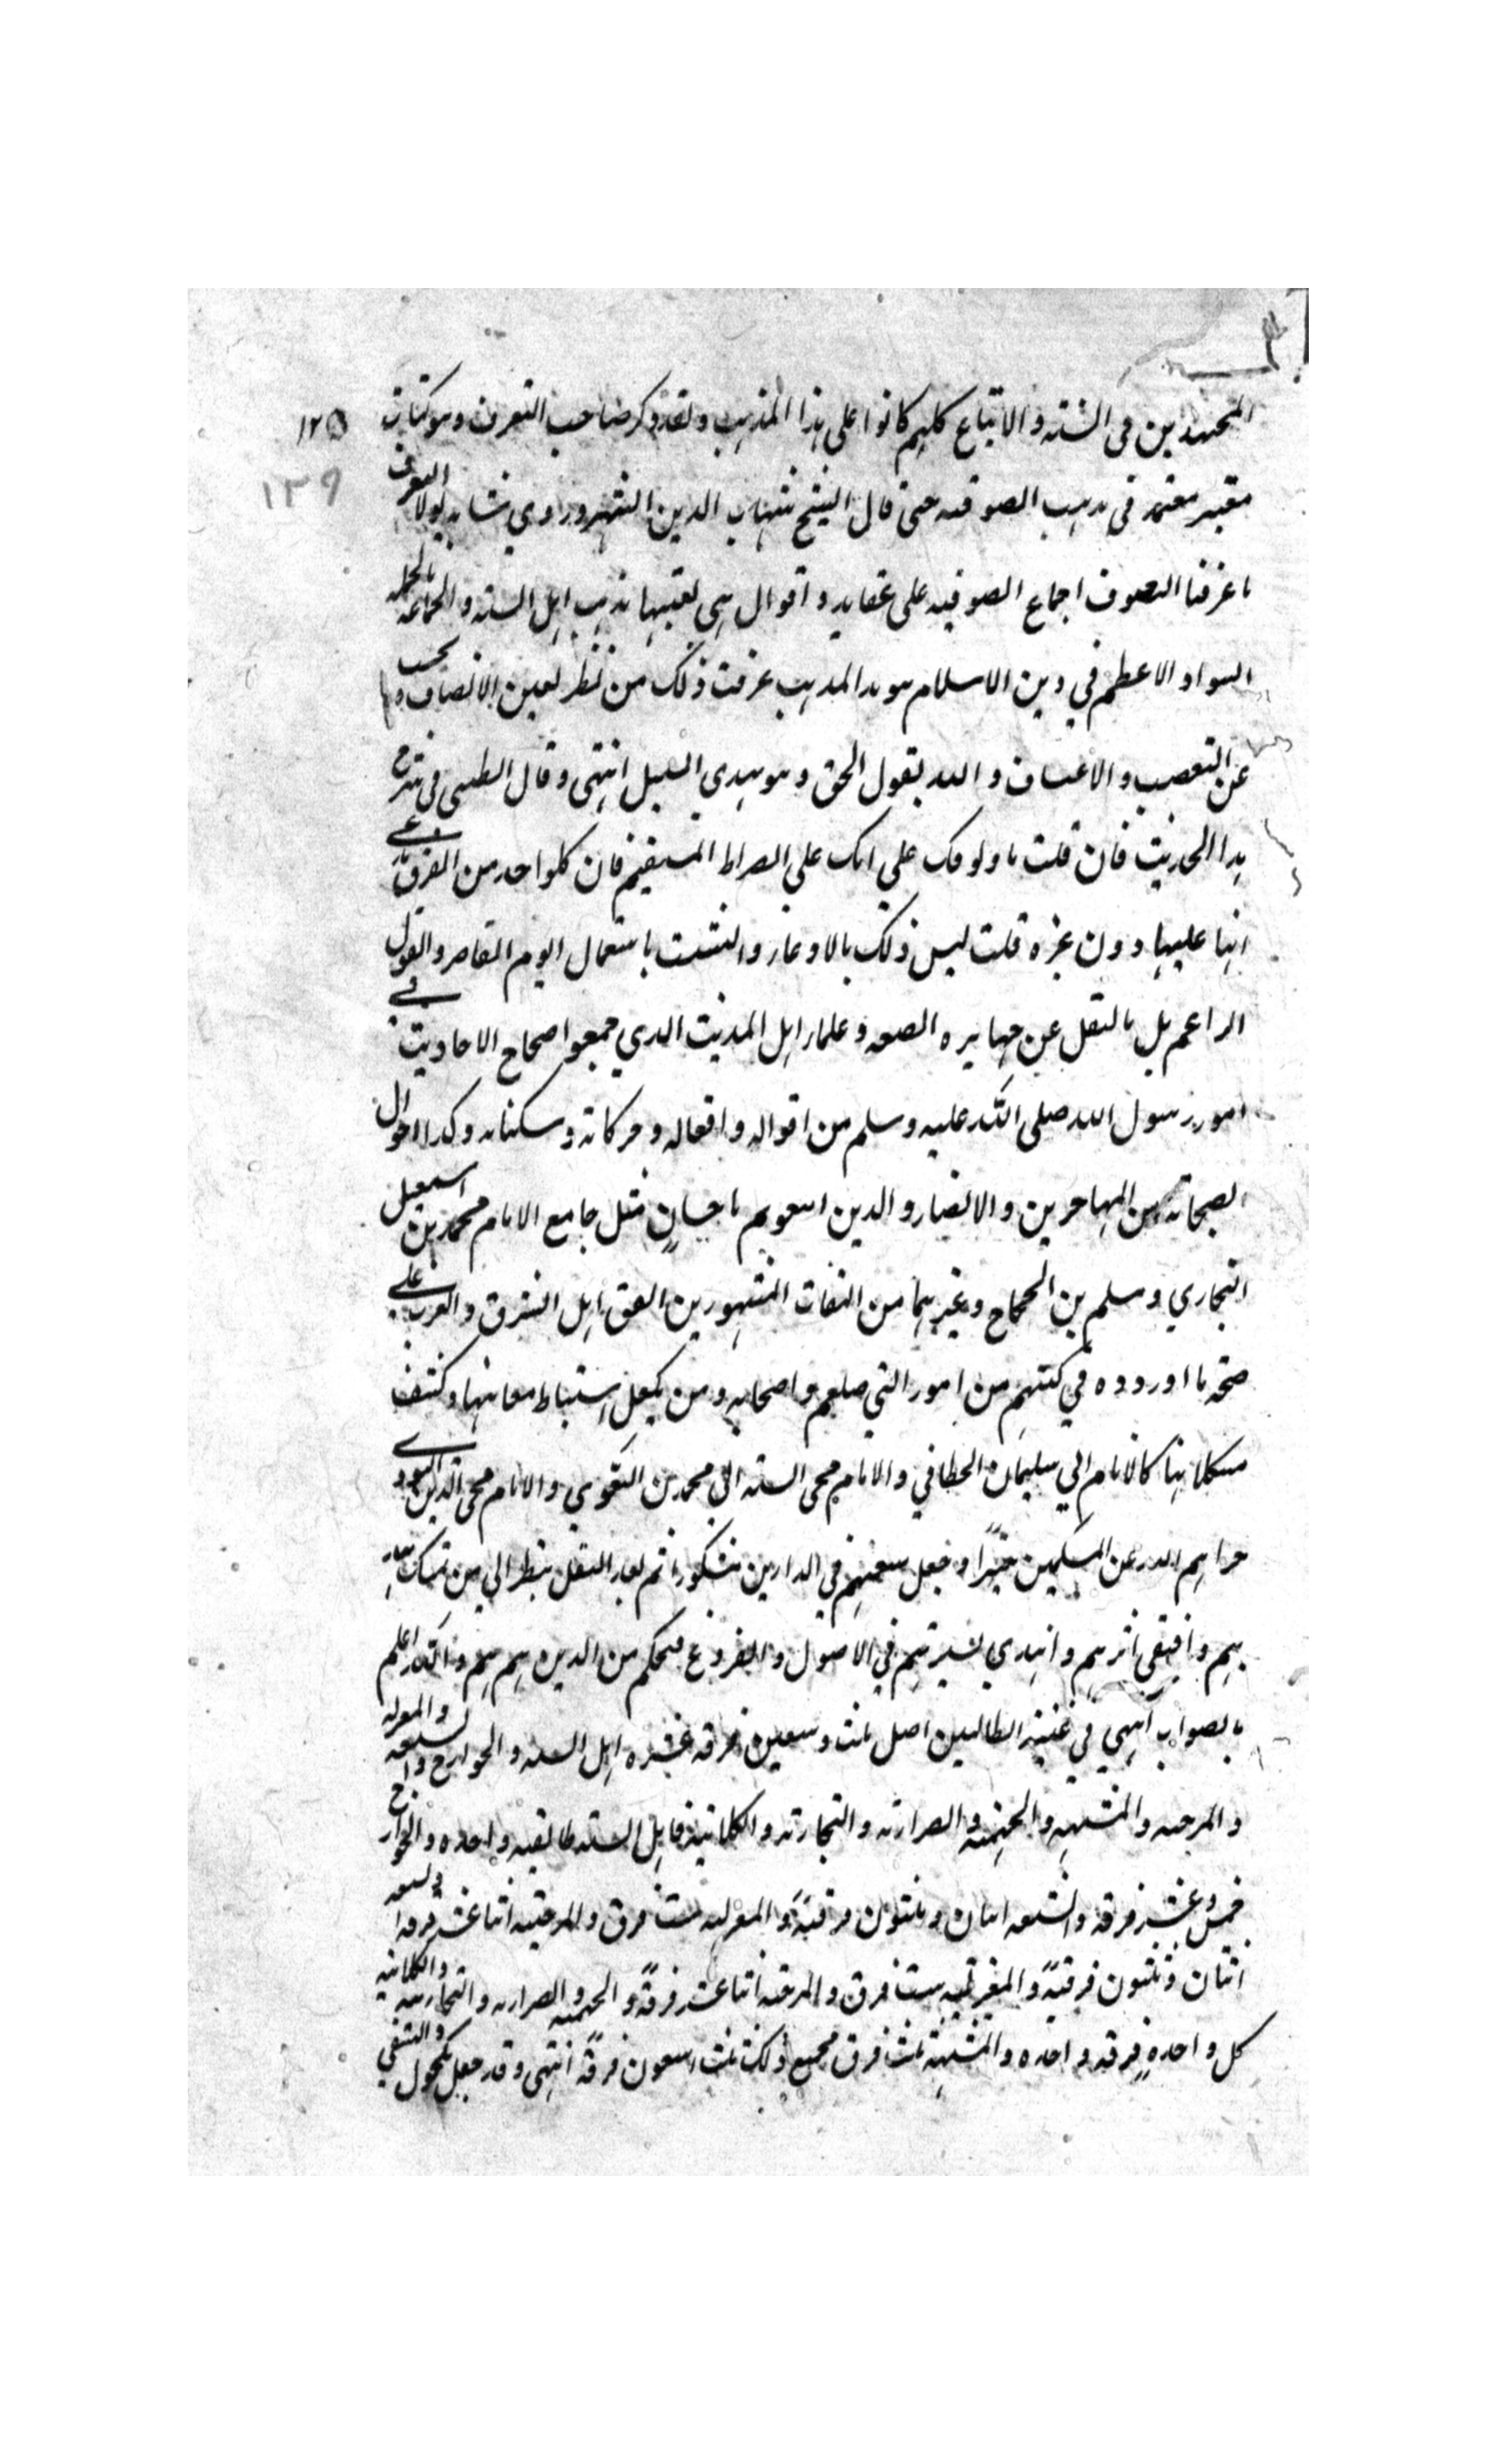 المجتهدين في السنة والاتباع كلهم كانوا على هذا المذهب ولقد ذكر صاحب التعرف وهو كتاب
١٢٥
١٣٩
معتبر معتمد في مذهب الصوفيه حتى قال الشيخ شهاب الدين السهروردي في شانه لولا التعرف
ما عرفنا التصوف اجماع الصوفيه على عقايد واقوال هي لعينها مذهب اهل السنه والجماعه بالجمله
السواد الاعظم في دين الاسلام هو هذا المذهب عرفت ذلك من نظر بعين الانصاف و تجنب
عن التعصب والاعتساف والله يقول الحق وهو يهدي السبيل انتهى وقال الطيبي في شرح
هذا الحديث فان قلت ما وثوقك على انك على الصراط المستقيم فان كلواحد من الفرق يدعي
انها عليها دون غيره قلت ليس ذلك بالادعاء والتشبث باستعمال الوهم القاصر والقول
الزاعم بل بالنقل عن جهابذه الصنعه وعلماء اهل الحديث الذي جمعوا صحاح الاحاديث في
امور رسول الله صلى الله عليه وسلم من اقواله وافعاله وحركاته وسكناته وكذا احوال
الصحابة من المهاجرين والانصار والذين اتبعوهم باحسان مثل جامع الامام محمد بن اسمعيل
البخاري ومسلم بن الحجاج وغيرهما من الثقات المشهورين اتفق اهل الشرق والغرب على
صحة ما اوردوه في كتبهم من امور النبي صلعم واصحابه ومن تكفل استنباط معانيها وكشف
مشكلاتها كالامام ابي سليمان الخطابي والامام محى السنه ابي محمد بن البغوي والامام محى الدين النووي
جزاهم الله عن المسلمين خيرًا وجعل سعيهم في الدارين مشكورا ثم بعد النقل ينظر الي من تمسك
بهم واقتفى اثرهم واهتدي بسيرتهم في الاصول والفروع فيحكم من الذين هم هم والله اعلم
بالصواب انتهي في غنية الطالبين اصل ثلث وسبعين فرقه عشره اهل السنه والخوارج والشيعه والمعتزله
والمرجئه والمشبهه والجهميه والضراريه والنجاريه والكلابية فاهل السنه طائفه واحده والخوارج
خمس عشر فرقه والشيعه اثنان وثلثون فرقة والمعتزله ست فرق والمرجئيه اثنا عشر فرقه والشيعه
اثنان وثلثون فرقة والمعتزلة ست فرق والمرجئه اثنا عشر فرقة والجهميه والضراريه والنجاريه والكلابيه
كل واحدة فرقه واحده والمشبهة ثلث فرق فجميع ذلك ثلث وسبعون فرقة انتهى وقد جعل مكحول والنسفي